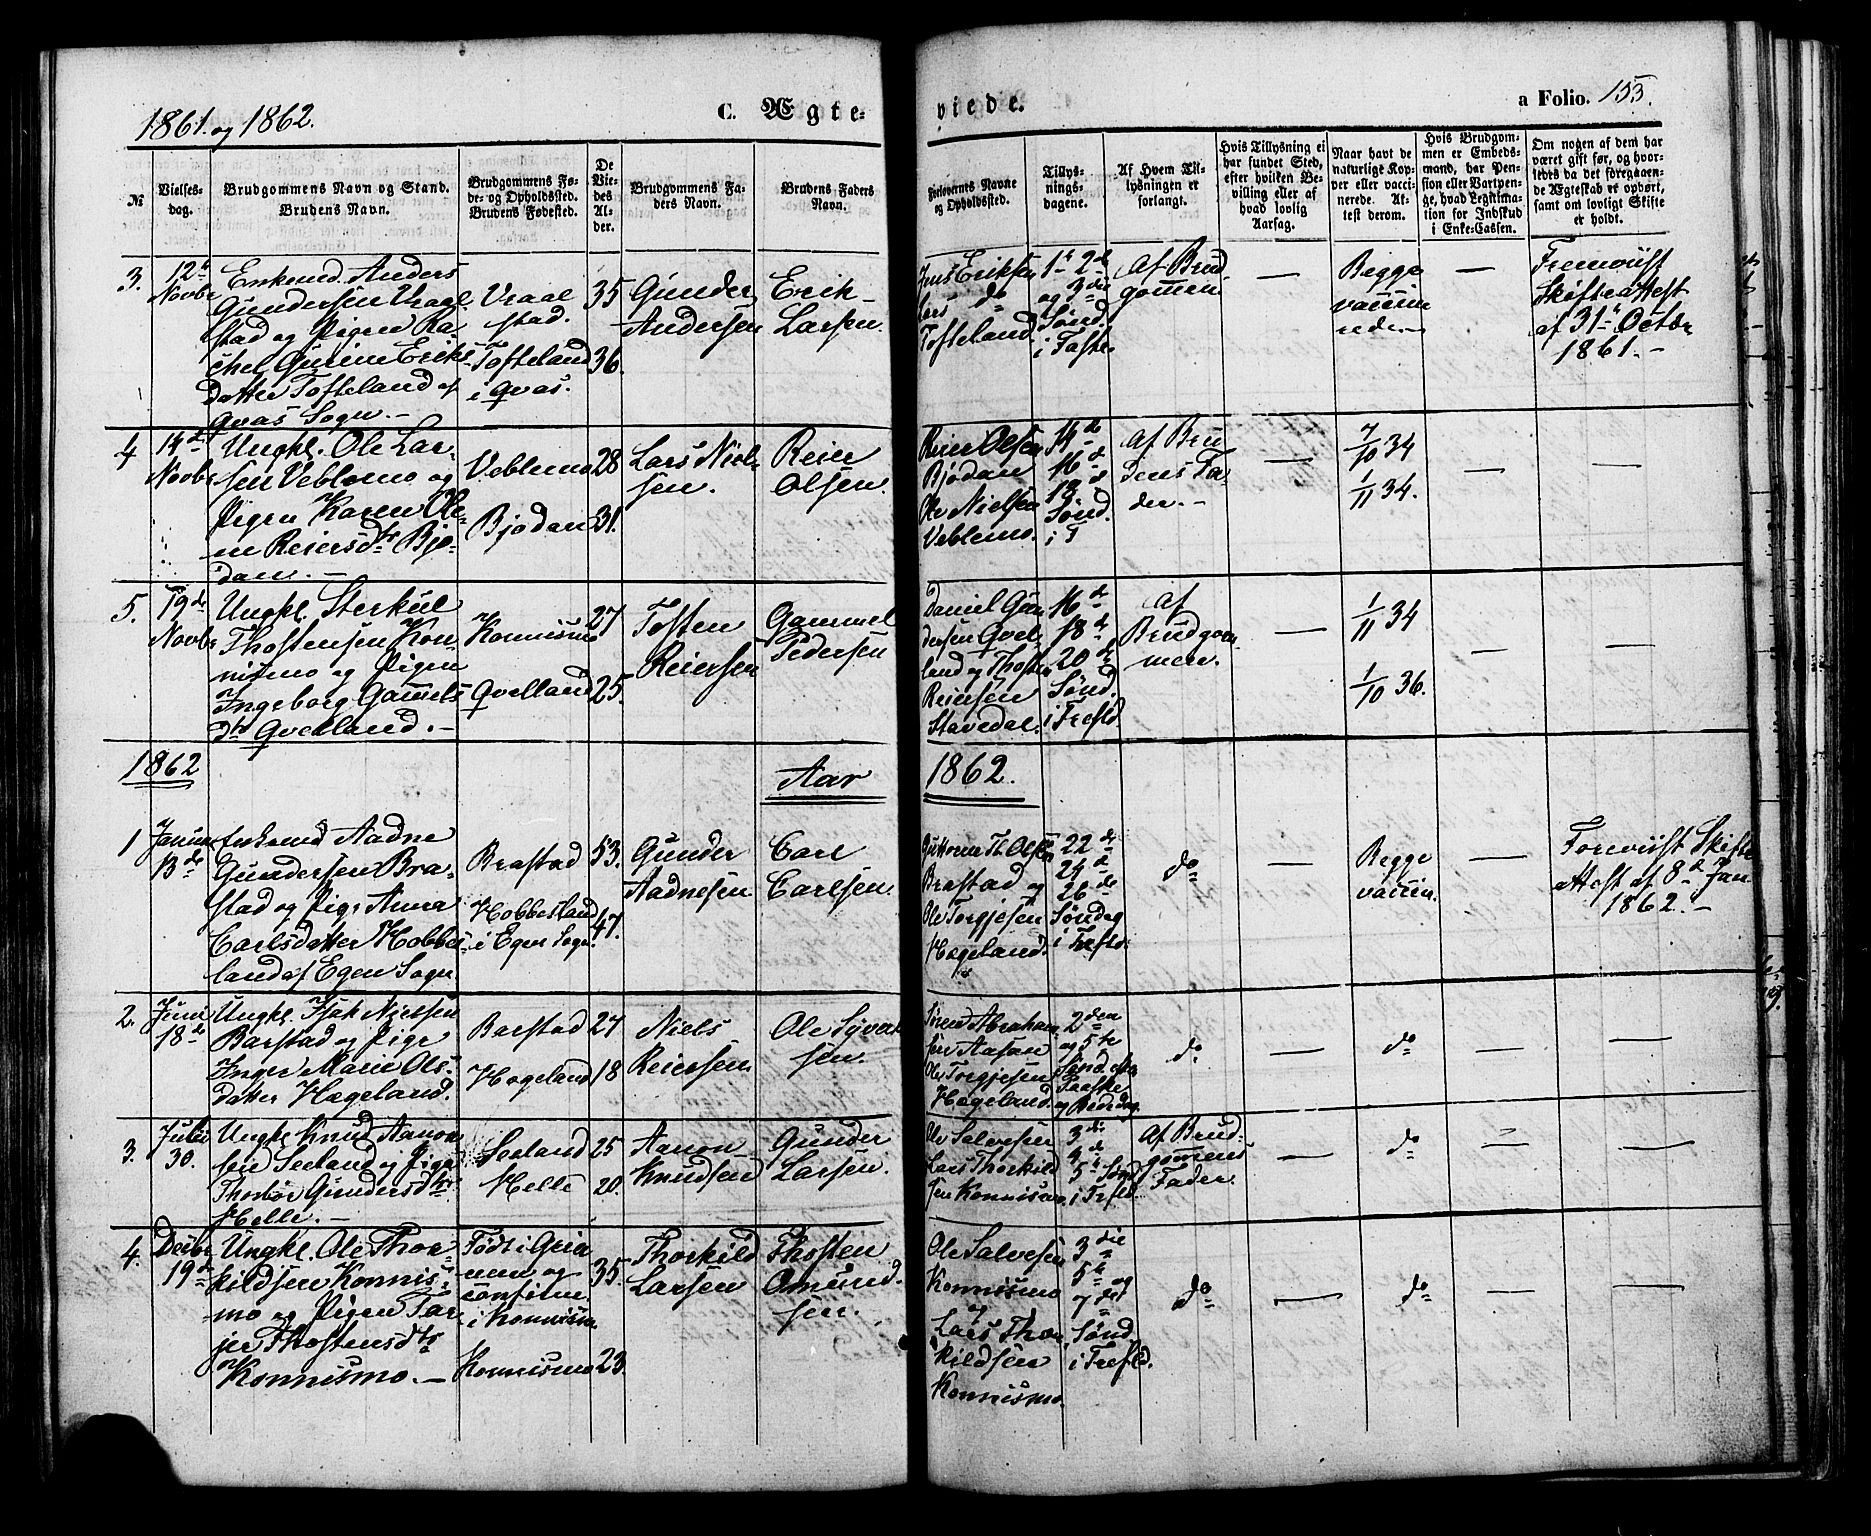 1861. og 1862.
C. Ægte-
viede.
a Folio. 153.
№
Vielses-
dag.
Brudgommens Navn og Stand.
Brudens Navn.
Brudgommens Fø-
de- og Opholdssted.
Brudens Fødested.
De
Vie-
des
Al-
der.
Brudgommens Fa-
ders Navn.
Brudens Faders
Navn.
Forlovernes Navne
og Opholdssted.
Tillys-
nings-
dagene.
Af Hvem Til-
lysningen er
forlangt.
Hvis Tillysning ei
har fundet Sted,
efter hvilken Be-
villing eller af
hvad lovlig
Aarsag.
Naar havt de
naturlige Kop-
per eller vacci-
nerede. At-
test derom.
Hvis Brudgom-
men er Embeds-
mand, har Pen-
sion eller Vartpen-
ge, hvad Legitima-
tion for Indskud
i Enke-Cassen.
Om nogen af dem har
været gift før, og hvor-
ledes da det foregaaen-
de Ægteskab er ophørt,
samt om lovligt Skifte
er holdt.
3.
12te
Novbr
Enkemd. Anders
Gundersen Vraal
stad og Pigen Ra-
chel Gurine Eriks
datter Tofteland af
Qvas Sogn. -
Vraal
stad.
Tofteland
i Qvas.
35
36.
Gunder
Andersen
Erik
Larsen.
Jens Eriksen
Lars do
Tofteland
1te 2de
og 3die
Sønd.
i Faste.
Af Brud
gommen
—
Begge
vaccine
rede.
—
Fremviist
Skifteattest
af 31te Octbr
1861. -
4
14de
Novbr
Ungkl. Ole Lar-
sen Veblemo og
Pigen Karen Ole-
ne Reiersdtr Bjo-
dan. -
Veblemo
Bjodan
28
31.
Lars Niel-
sen.
Reier
Olsen.
Reier Olsen
Bjødan
Ole Nielsen
Veblemo.
14de
16de
18de
Sønd.
i T
Af Bru
dens Fa-
der. -
—
7/10 34
1/11 34.
—
—
5.
19de
Novbr
Ungkl. Sterkul
Thostensen Kon-
nismo og Pigen
Ingeborg Gamels
dtr Qvelland. -
Konnismo
Qvelland
27
25.
Tosten
Reiersen
Gammel
Pedersen
Daniel Gun
dersen Qvel-
land og Thosten
Reiersen
Stavedal.
16de
18de
20de
Sønd.
i Trefld
Af
Brudgom
men.
—
1/11 34
1/10 36.
—
—
1862
Aar
1862.
1
Januar
13de
Enkemd Aadne
Gundersen Bra-
stad og Pige Anna
Carlsdatter Hobbes-
land af Egen Sogn
Brastad
Hobbesland
i Egen Sogn.
53.
47.
Gunder
Aadnesen
Carl
Carlsen.
Guttorm Th. Olsen
Brastad og
Ole Torgjesen
Hageland.
22de
24de
26de
Søndag
i Trefld.
do
—
Begge
vaccin.
—
Foreviist Skifte
attest af 8de Jan
1862. -
2.
Juni
18de
Ungkl. Isak Nielsen
Barstad og Pige
Inger Marie Ols-
datter Hægeland.
Barstad
Hægeland
27
18
Niels
Reiersen
Ole Syvert
sen.
Søren Abraham
sen Aasan
Ole Torgjesen
Hægeland.
2den
og 5te
Sønd. efter
Paaske
og Bededag
do
—
do
—
—
3.
Julii
30.
Ungkl. Knud Aanon
sen Seeland og Pige
Thorbør Gundersdtr
Helle. -
Seeland
Helle
25
20.
Aanon
Knudsen
Gunder
Larsen.
Ole Salvesen
Lars Thorkild
sen Konnismo.
3die
4de
5te Sønd
i Trefld.
Af Brud-
gomens
Fader.
—
do
—
—
4.
Decbr
19de
Ungkl. Ole Thor-
kildsen Konnis-
mo og Pigen Tar-
jer Thostensdtr
Konnismo. -
Født i Grin
men og
confirm.
i Konnism.
Konnismo
35.
23.
Thorkild
Larsen
Thosten
Omund-
sen.
Ole Salvesen
Konnismo
og
Lars Thor
kildsen
Konnismo.
3die
5te og
7de
Sønd
i Trefld.
do
—
do
—
—